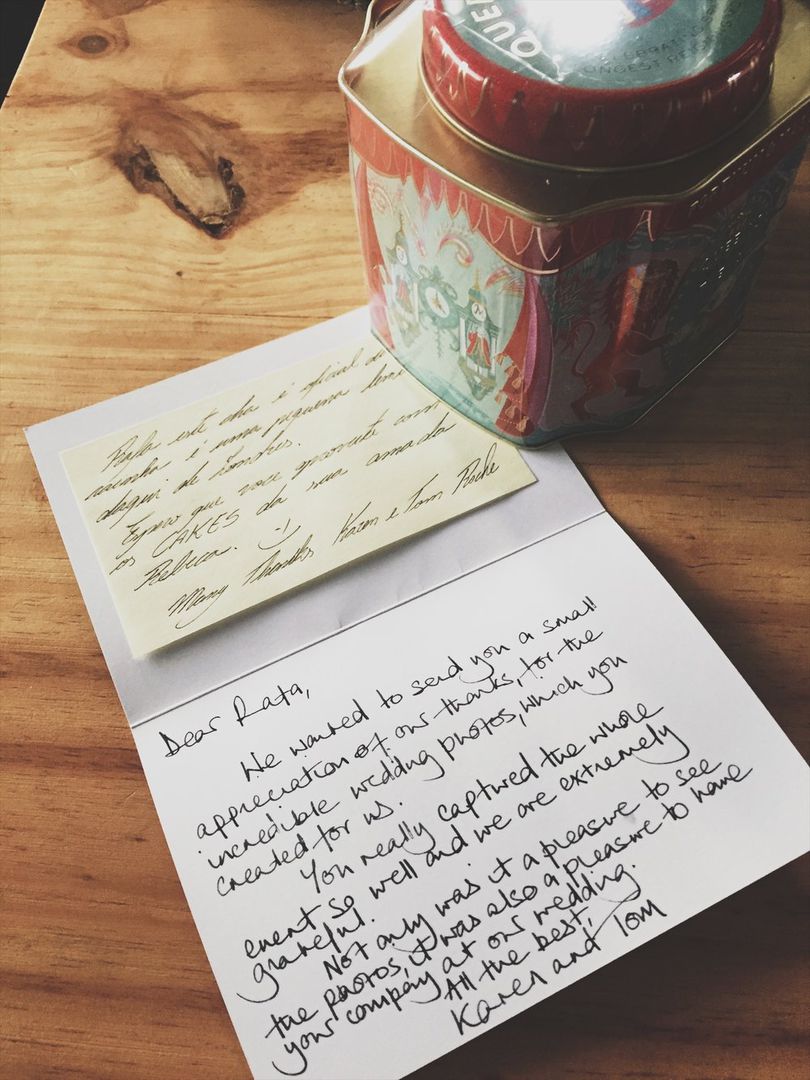 QUEE
CELEBRATI
ONGEST RE
Rafa este cha é oficial da
rainha e uma pequena lem
daqui de Londres.
Espero que voce aproveite com
os CAKES da sua amada
Rebeca. :-)
Many thanks Karen e Tom Roche
Dear Rafa,
We wanted to send you a small
appreciation of our thanks, for the
incredible wedding photos, which you
created for us.
You really captured the whole
event so well and we are extremely
grateful.
Not only was it a pleasure to see
the photos, it was also a pleasure to have
your company at our wedding.
All the best,
Karen and Tom